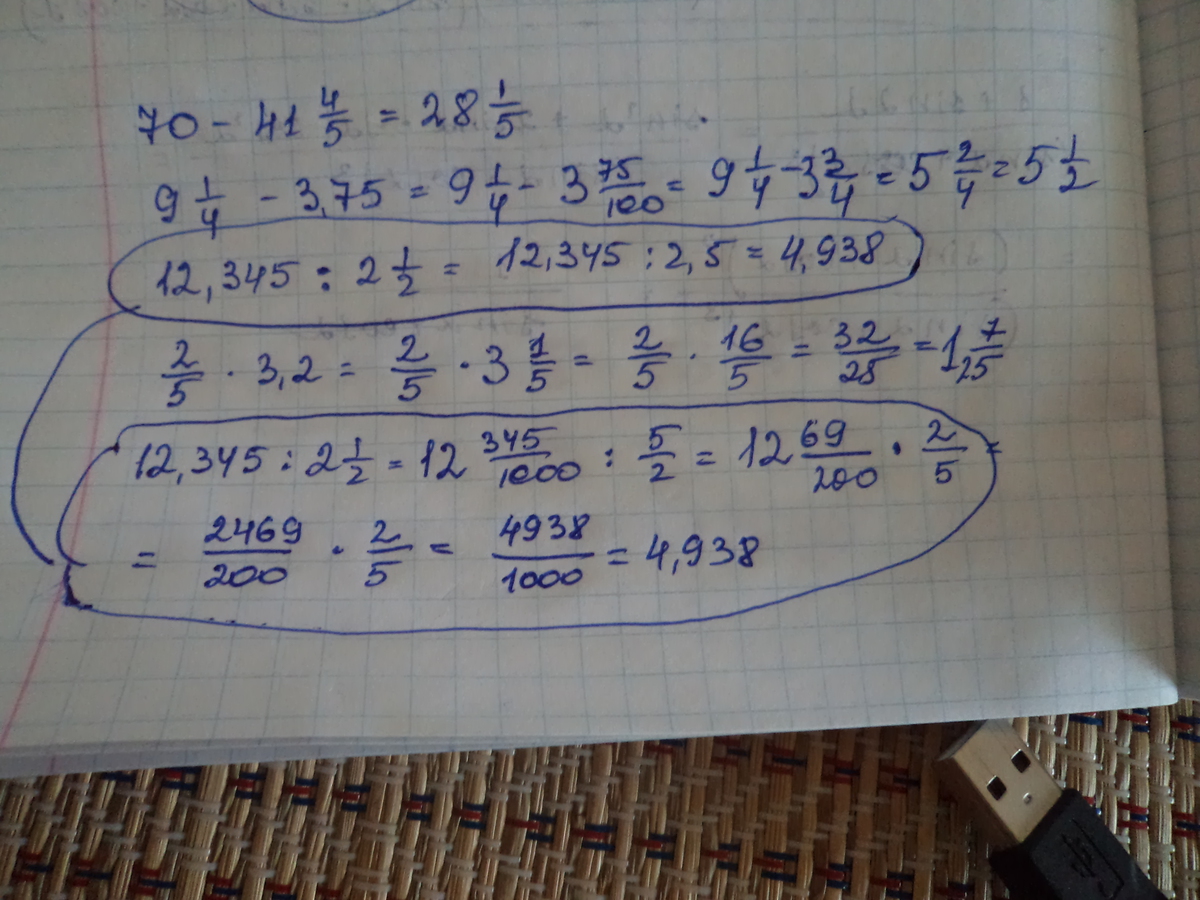 70 - 41 4/5 = 28 1/5
9 1/4 - 3,75 = 9 1/4 - 3 75/100 = 9 1/4 - 3 3/4 = 5 2/4 = 5 1/2
12,345 : 2 1/2 = 12,345 : 2,5 = 4,938
2/5 · 3,2 = 2/5 · 3 1/5 = 2/5 · 16/5 = 32/25 = 1 7/25
12,345 : 2 1/2 = 12 345/1000 : 5/2 = 12 69/200 · 2/5 =
= 2469/200 · 2/5 = 4938/1000 = 4,938